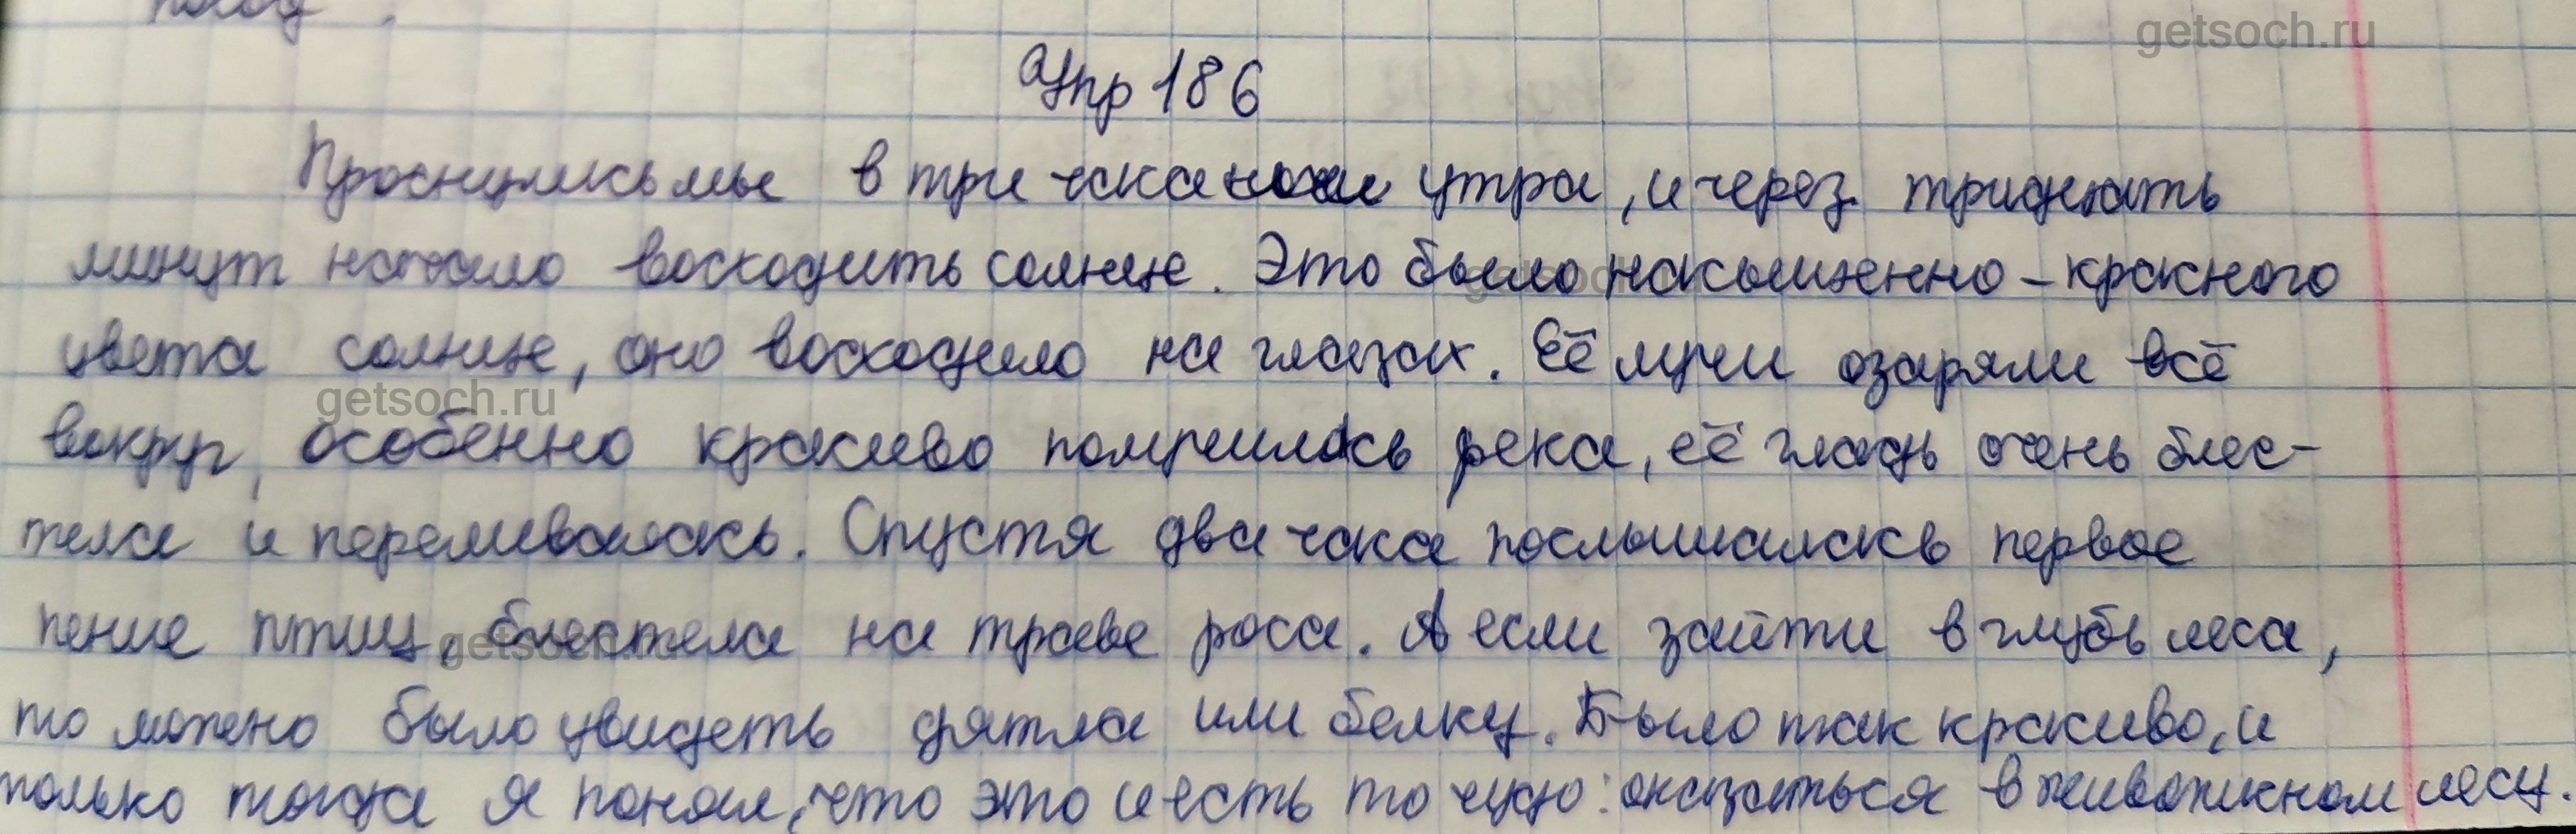 getsoch.ru
Упр 186
Проснулись мы в три часа ночи утра, и через тридцать
минут начало восходить солнце. Это было насыщенно-красного
цвета солнце, оно восходило на глазах. Её лучи озаряли всё
вокруг, особенно красиво получилась река, её гладь очень блес-
тела и переливалась. Спустя два часа послышалась первое
пение птиц, блестела на траве роса. А если зайти в глубь леса,
то можно было увидеть дятла или белку. Было так красиво, и
только тогда я понял, что это и есть то чудо: оказаться в живописном лесу.
getsoch.ru
getsoch.ru
getsoch.ru